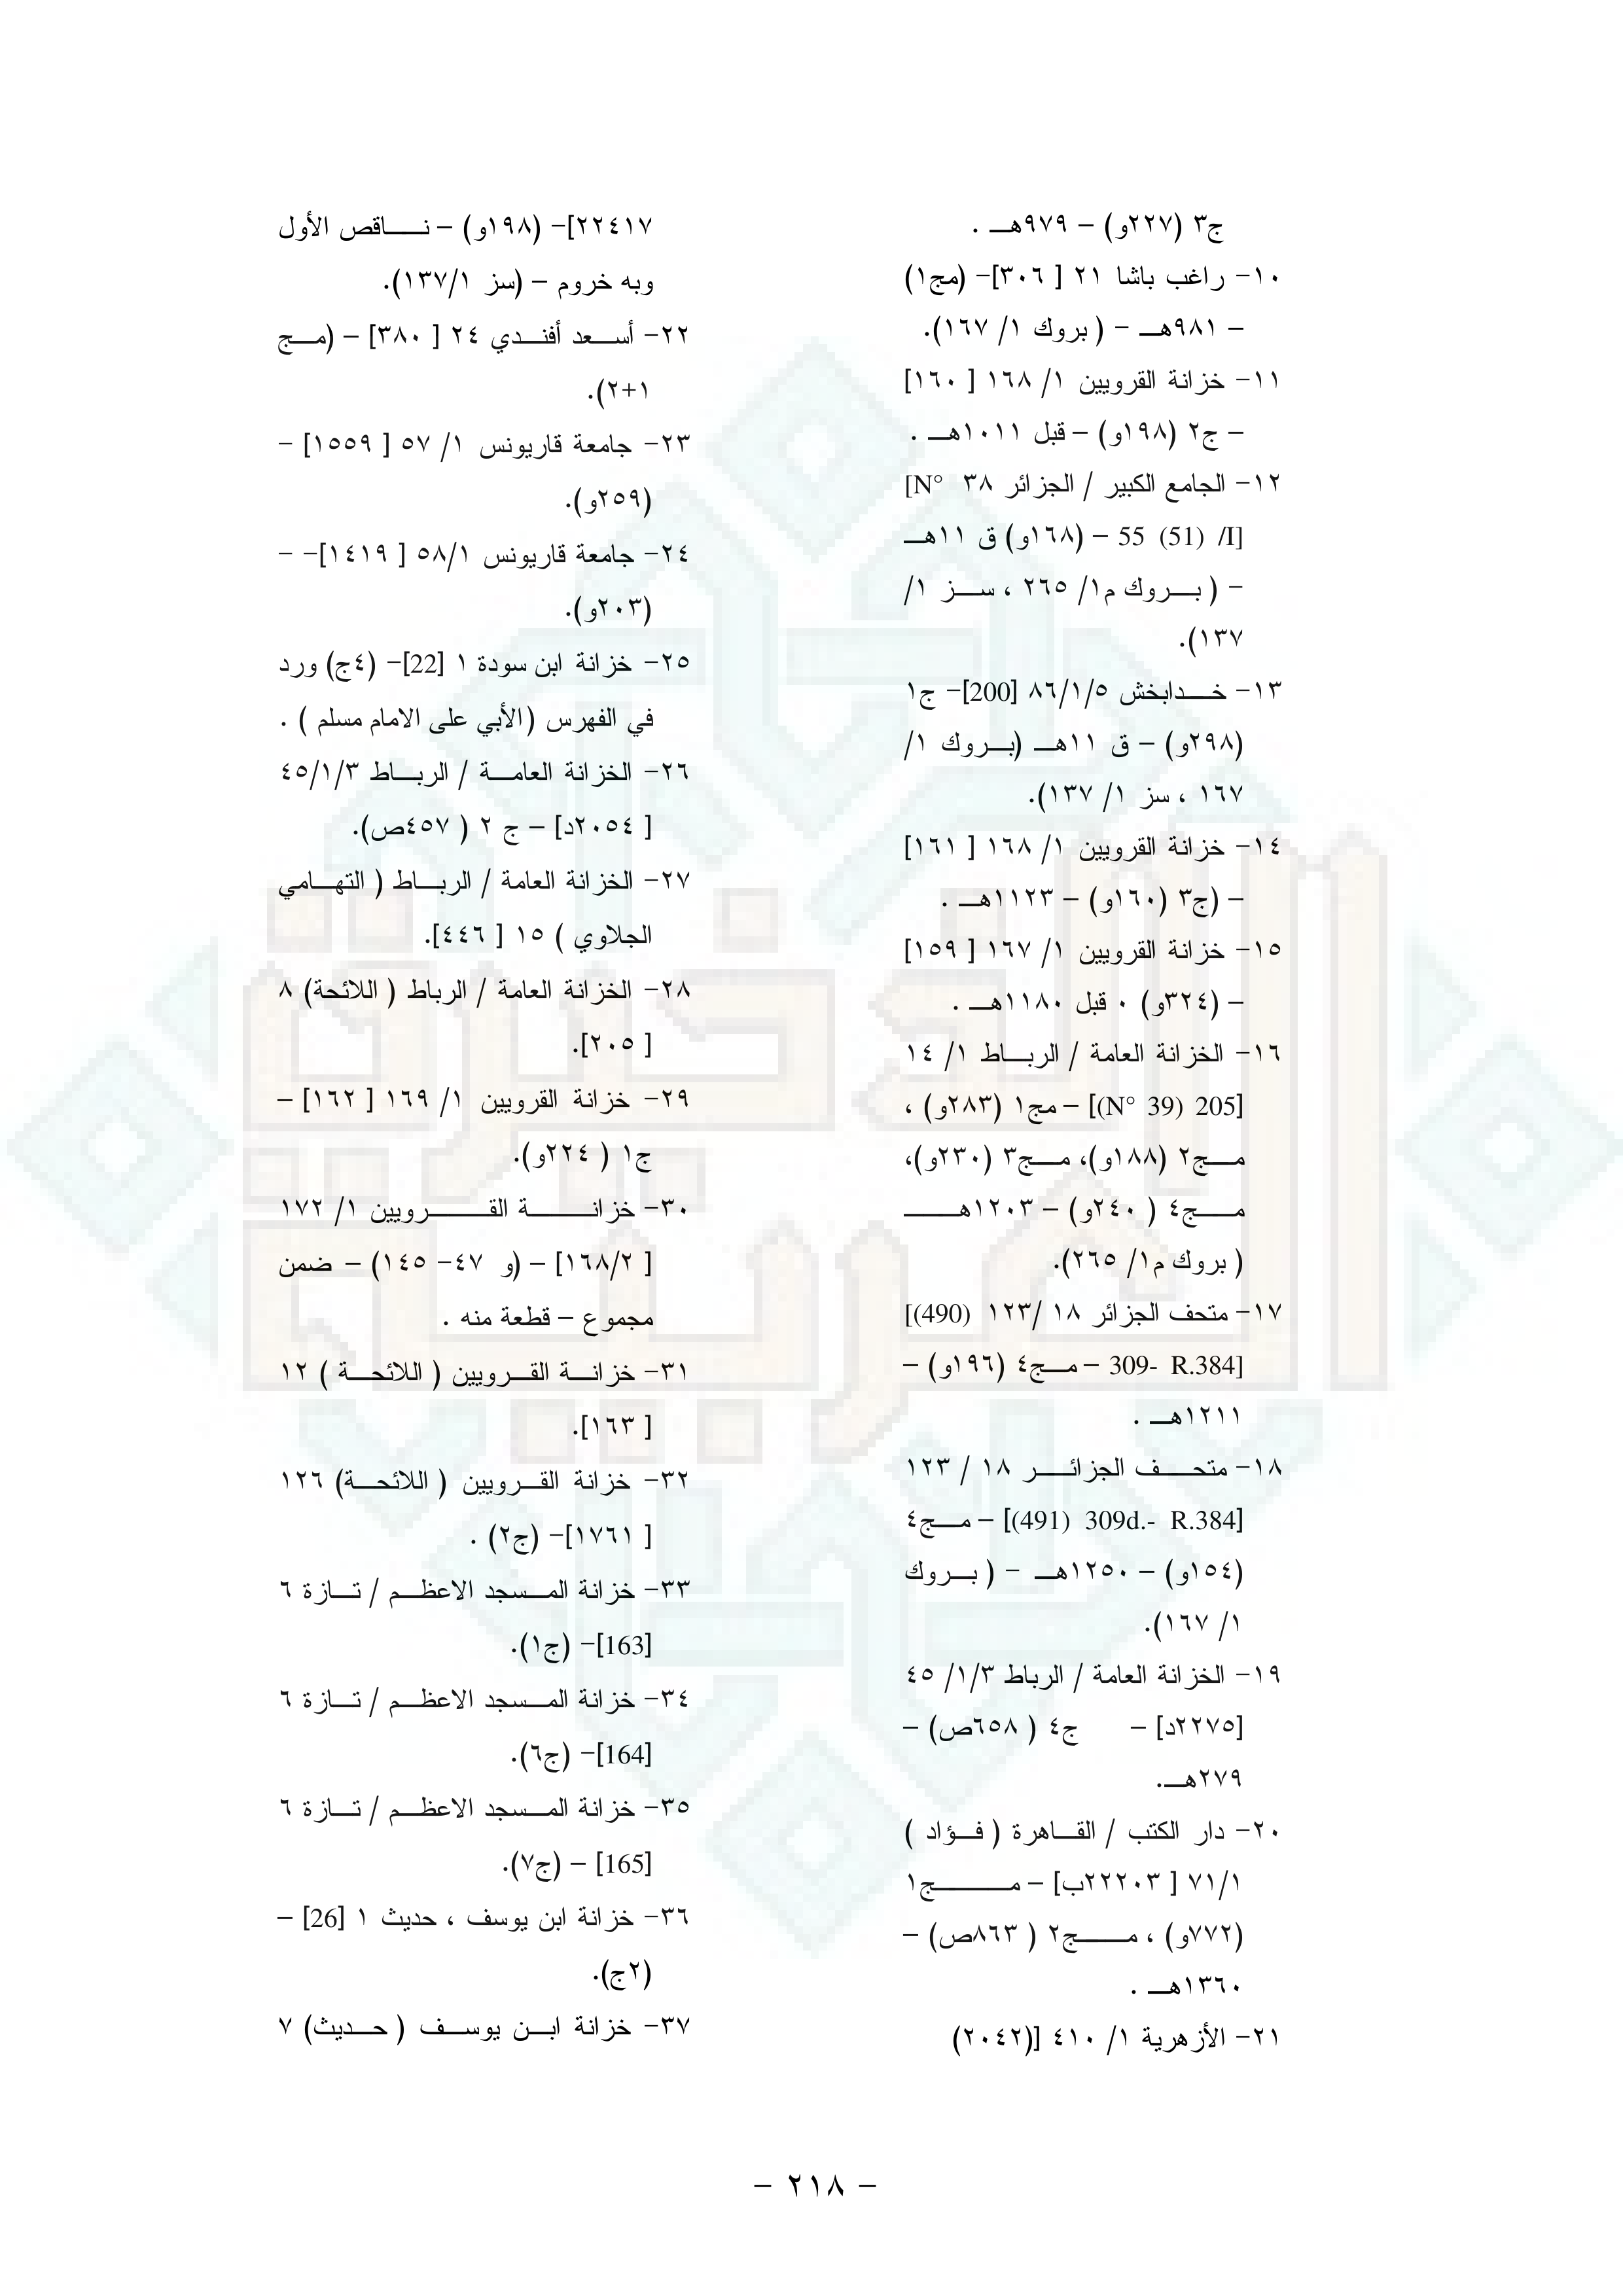 ج٣ (٢٢٧و) – ٩٧٩هـ .
١٠- راغب باشا ٢١ [ ٣٠٦]- (مج١)
– ٩٨١هـ - ( بروك ١/ ١٦٧).
١١- خزانة القرويين ١/ ١٦٨ [ ١٦٠]
– ج٢ (١٩٨و) – قبل ١٠١١هـ .
١٢- الجامع الكبير / الجزائر ٣٨ N°]
[I/ (51) 55 – (١٦٨و) ق ١١هـ
- ( بروك م١/ ٢٦٥ ، سز ١/
١٣٧).
١٣- خدابخش ٨٦/١/٥ [200]- ج١
(٢٩٨و) – ق ١١هـ (بروك ١/
١٦٧ ، سز ١/ ١٣٧).
١٤- خزانة القرويين ١/ ١٦٨ [ ١٦١]
– (ج٣ (١٦٠و) – ١١٢٣هـ .
١٥- خزانة القرويين ١/ ١٦٧ [ ١٥٩]
– (٣٢٤و) ٠ قبل ١١٨٠هـ .
١٦- الخزانة العامة / الرباط ١/ ١٤
[205 (N° 39)] – مج١ (٢٨٣و) ،
مج٢ (١٨٨و)، مج٣ (٢٣٠و)،
مج٤ ( ٢٤٠و) – ١٢٠٣هـ
( بروك م١/ ٢٦٥).
١٧- متحف الجزائر ١٨ /١٢٣ (490)]
[309- R.384 – مج٤ (١٩٦و) –
١٢١١هـ .
١٨- متحف الجزائر ١٨ / ١٢٣
[(491) 309d.- R.384] – مج٤
(١٥٤و) – ١٢٥٠هـ - ( بروك
١/ ١٦٧).
١٩- الخزانة العامة / الرباط ١/٣/ ٤٥
[٢٢٧٥د] – ج٤ ( ٦٥٨ص) –
٢٧٩هـ.
٢٠- دار الكتب / القاهرة ( فؤاد )
٧١/١ [ ٢٢٢٠٣ب] – مج١
(٧٧٢و) ، مج٢ ( ٨٦٣ص) –
١٣٦٠هـ .
٢١- الأزهرية ١/ ٤١٠ [(٢٠٤٢)
٢٢٤١٧]- (١٩٨و) – ناقص الأول
وبه خروم – (سز ١٣٧/١).
٢٢- أسعد أفندي ٢٤ [ ٣٨٠] – (مج
١+٢).
٢٣- جامعة قاريونس ١/ ٥٧ [ ١٥٥٩] -
(٢٥٩و).
٢٤- جامعة قاريونس ٥٨/١ [ ١٤١٩]- -
(٢٠٣و).
٢٥- خزانة ابن سودة ١ [22]- (٤ج) ورد
في الفهرس (الأبي على الامام مسلم ) .
٢٦- الخزانة العامة / الرباط ٤٥/١/٣
[ ٢٠٥٤د] – ج ٢ ( ٤٥٧ص).
٢٧- الخزانة العامة / الرباط ( التهامي
الجلاوي ) ١٥ [ ٤٤٦].
٢٨- الخزانة العامة / الرباط ( اللائحة) ٨
[ ٢٠٥].
٢٩- خزانة القرويين ١/ ١٦٩ [ ١٦٢] –
ج١ ( ٢٢٤و).
٣٠- خزانة القرويين ١/ ١٧٢
[ ١٦٨/٢] – (و ٤٧- ١٤٥) – ضمن
مجموع – قطعة منه .
٣١- خزانة القرويين ( اللائحة ) ١٢
[ ١٦٣].
٣٢- خزانة القرويين ( اللائحة) ١٢٦
[ ١٧٦١]- (ج٢) .
٣٣- خزانة المسجد الاعظم / تازة ٦
[163]- (ج١).
٣٤- خزانة المسجد الاعظم / تازة ٦
[164]- (ج٦).
٣٥- خزانة المسجد الاعظم / تازة ٦
[165] – (ج٧).
٣٦- خزانة ابن يوسف ، حديث ١ [26] –
(٢ج).
٣٧- خزانة ابن يوسف ( حديث) ٧
– ٢١٨ –